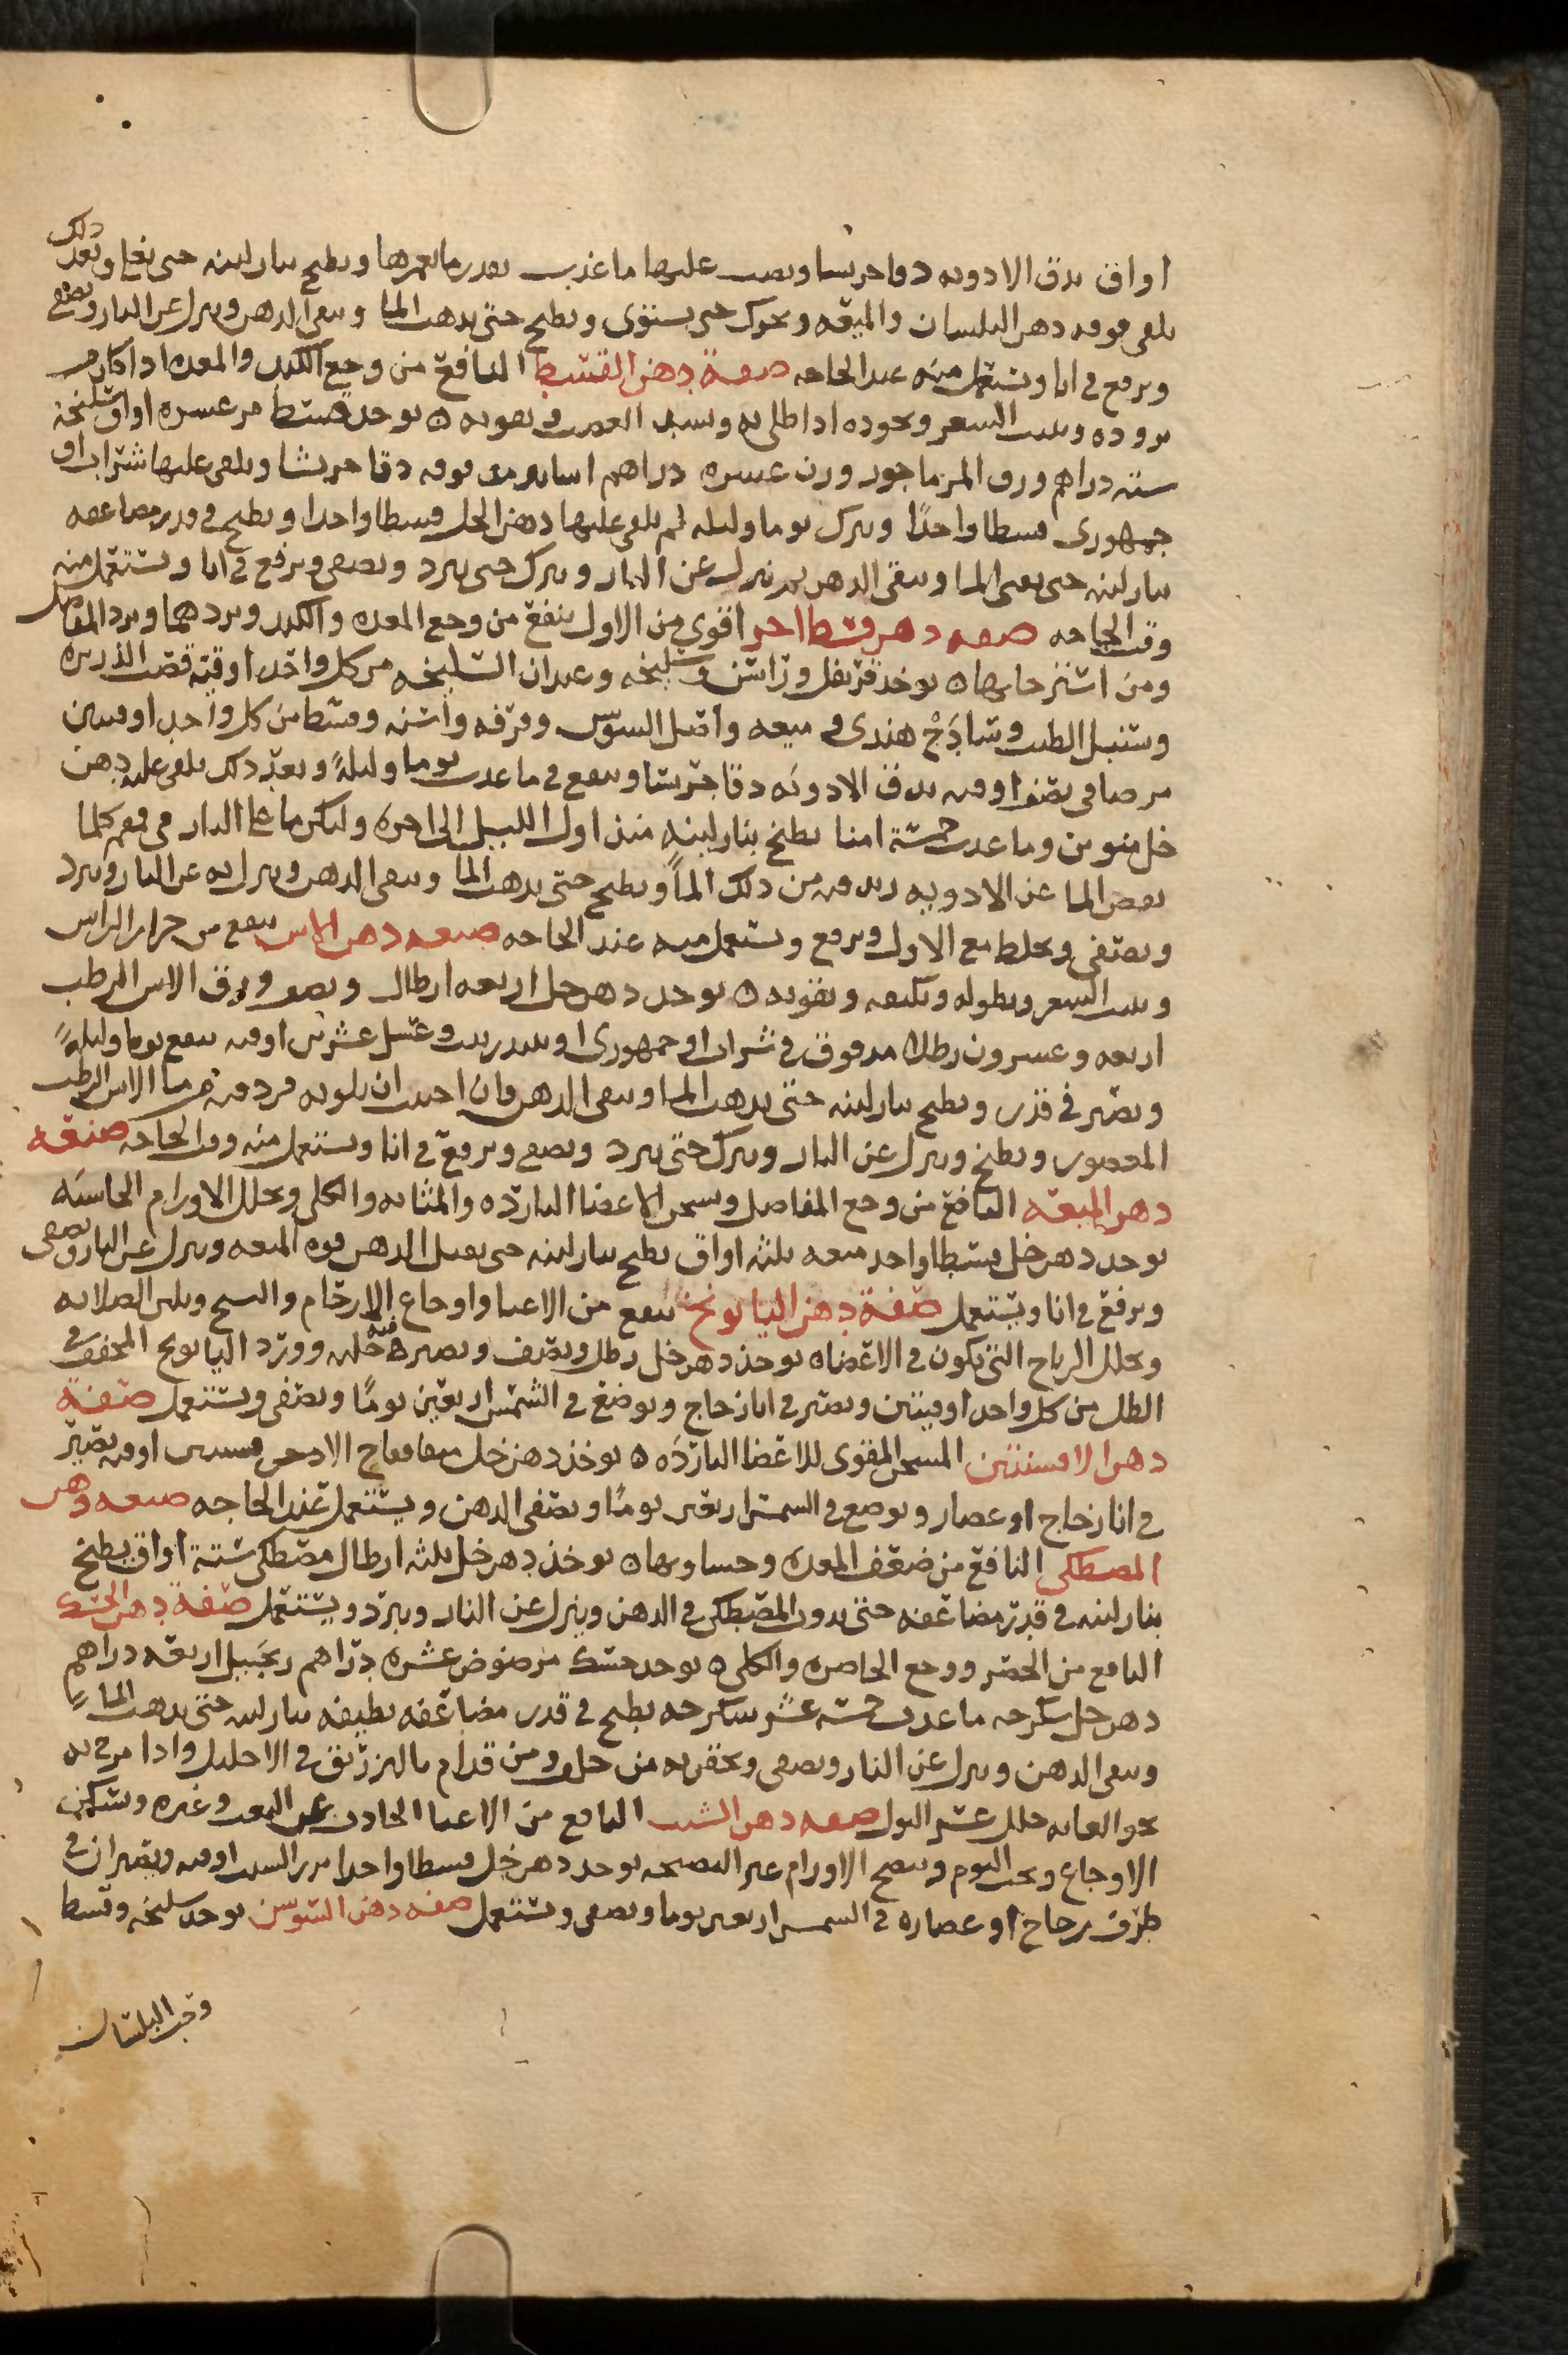 اواق تدق الادويه دقا جريشا ويصب عليها ما عذب بقدر ما يغمرها ويطبخ بنار لينه حتى يغلي وبعد ذلك
يلقى فوقه دهن البلسان والميعه ويحرك حتى يستوى ويطبخ حتى يذهب الما ويبقى الدهن وينزل عن النار ويصفى
ويرفع في انا ويستعمل منه عند الحاجه صفة دهن القسط النافع من وجع الكبد والمعده اذا كان من
بروده وينبت الشعر ويجوده اذا طلي به ويشد العصب ويقويه ه يوخذ قسط مر عشره اواق سليخه
سته دراهم ورق المرماحور وزن عشره دراهم يدق دقا جريشا ويلقى عليها شراب او
جمهوري قسطا واحدًا ويترك يوما وليله ثم يلقى عليها دهن الحل قسطا واحدا ويطبخ في قدر مضاعفه
بنار لينه حتى يفنى الما ويبقى الدهن ثم ينزل عن النار ويترك حتى يبرد ويصفى ويرفع في انا ويستعمل منه
وقت الحاجه صفه دهن قسط اخر اقوى من الاول ينفع من وجع المعده والكبد وبردهما وبرد المفاصل
ومن استرخايها ه يوخذ قرنفل وراسن وسليخه وعيدان السليخه من كل واحد اوقيه قصب الذريره
وسنبل الطيب وساذج هندى و ميعه واصل السوس وقرفه واشنه وقسط من كل واحد اوقيتين
مر صافي نصف اوقيه تدق الادويه دقا جريشا وينقع في ما عذب يوما وليلةً وبعد ذلك يلقى عليه دهن
خل منوين وما عذب خمسة امنا يطبخ بنار لينه منذ اول الليل الى اخره وليكن ما على النار في قمقم كلما
نقص الما عن الادويه زيد فيه من ذلك الما ويطبخ حتى يذهب الما ويبقى الدهن وينزل به عن النار ويبرد
ويصفى ويخلط مع الاول ويرفع ويستعمل منه عند الحاجه صفه دهن الاس ينفع من حزاز الراس
وينبت الشعر ويطوله ويكثفه ويقويه ه يوخذ دهن حل اربعه ارطال ورق الاس الرطب
اربعه وعشرون رطلا مدقوق في شراب او جمهوري او نبيذ زبيب وعسل عشرين اوقيه ينقع يوما وليلةً
ويصير في قدر ويطبخ بنار لينه حتى يذهب الما ويبقى الدهن وان احببت ان يكون فزد فيه من ما الاس الرطب
المعصور ويطبخ وينزل عن النار ويترك حتى يبرد ويصفى ويرفع في انا ويستعمل منه وقت الحاجه صنعه
دهن الميعه النافع من وجع المفاصل ويسخن الاعضا البارده والمثانه والكلى ويحلل الاورام الجاسيه
يوخذ دهن خل قسطا واحد ميعه ثلثه اواق يطبخ بنار لينه حتى يقبل الدهن قوه الميعه وينزل عن النار ويصفى
ويرفع في انا ويستعمل صفة دهن البابونج ينفع من الاعيا واوجاع الارحام والسحج ويلين الصلابه
ويحلل الرياح التي تكون في الاعضا ه يوخذ دهن خل رطل ونصف ويصير فيه حلبه وورد البابونج المجفف في
الظل من كل واحد اوقيتين ويصير في انا زجاج ويوضع في الشمس اربعين يومًا ويصفى ويستعمل صفة
دهن الافسنتين المسخن المقوى للاعضا البارده ه يوخذ دهن خل فقاح الاذخر اوقيه يصير
في انا زجاج او عصار ويوضع في الشمس اربعين يومًا ويصفى الدهن ويستعمل عند الحاجه صفه دهن
المصطكي النافع من ضعف المعده وحساوتها ه يوخذ دهن خل ثلثه ارطال مصطكي ستة اواق يطبخ
بنار لينه في قدر مضاعفه حتى يذوب المصطكي في الدهن وينزل عن النار ويبرد ويستعمل صفة دهن الحسك
النافع من الحصر ووجع الخاصره والكلى ه يوخذ حسك مرضوض عشره دراهم زنجبيل اربعه دراهم
دهن حل سكرجه ما عذب خمسه عشر سكرجه يطبخ في قدر مضاعفه نظيفه بنار لينه حتى يذهب الما
ويبقى الدهن وينزل عن النار ويصفى ويحقن به من خلف ومن قدام بالزراقه في الاحليل واذا مرخ به
نحو العانه حلل عسر البول صفه دهن الشبت النافع من الاعيا الحادث عن التعب وغيره ويسكن
الاوجاع ويجلب النوم وينضج الاورام غير النضيجه يوخذ دهن خل قسطا واحدا بزر الشبت اوقيه ويصيران في
ظرف زجاج او عصاره في الشمس اربعين يوما ويصفى ويستعمل صفه دهن السوسن يوخذ سليخه وقسط
وحب البلسان